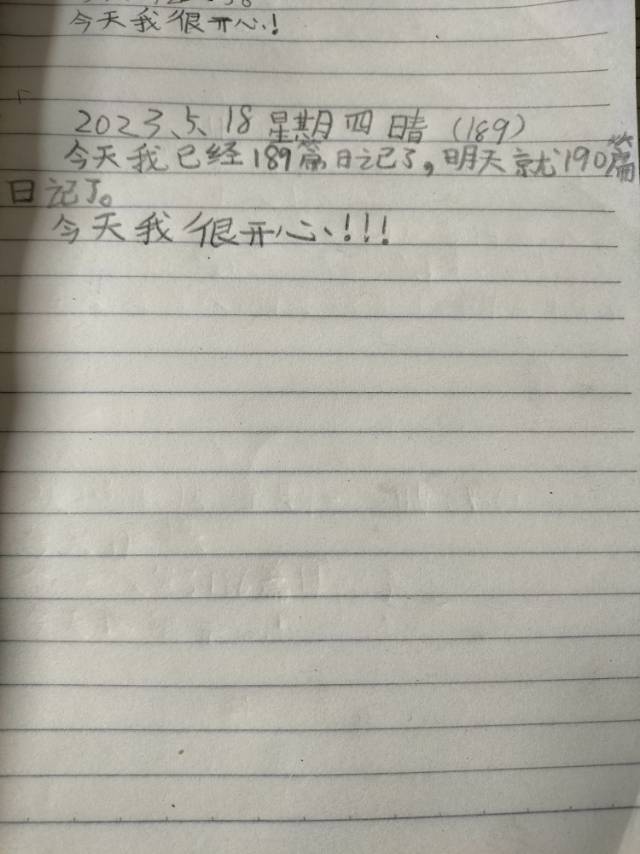 今天我很开心!
2023、5、18 星期四 晴 (189)
今天我已经189篇日记了,明天就190篇
日记了。
今天我很开心、!!!